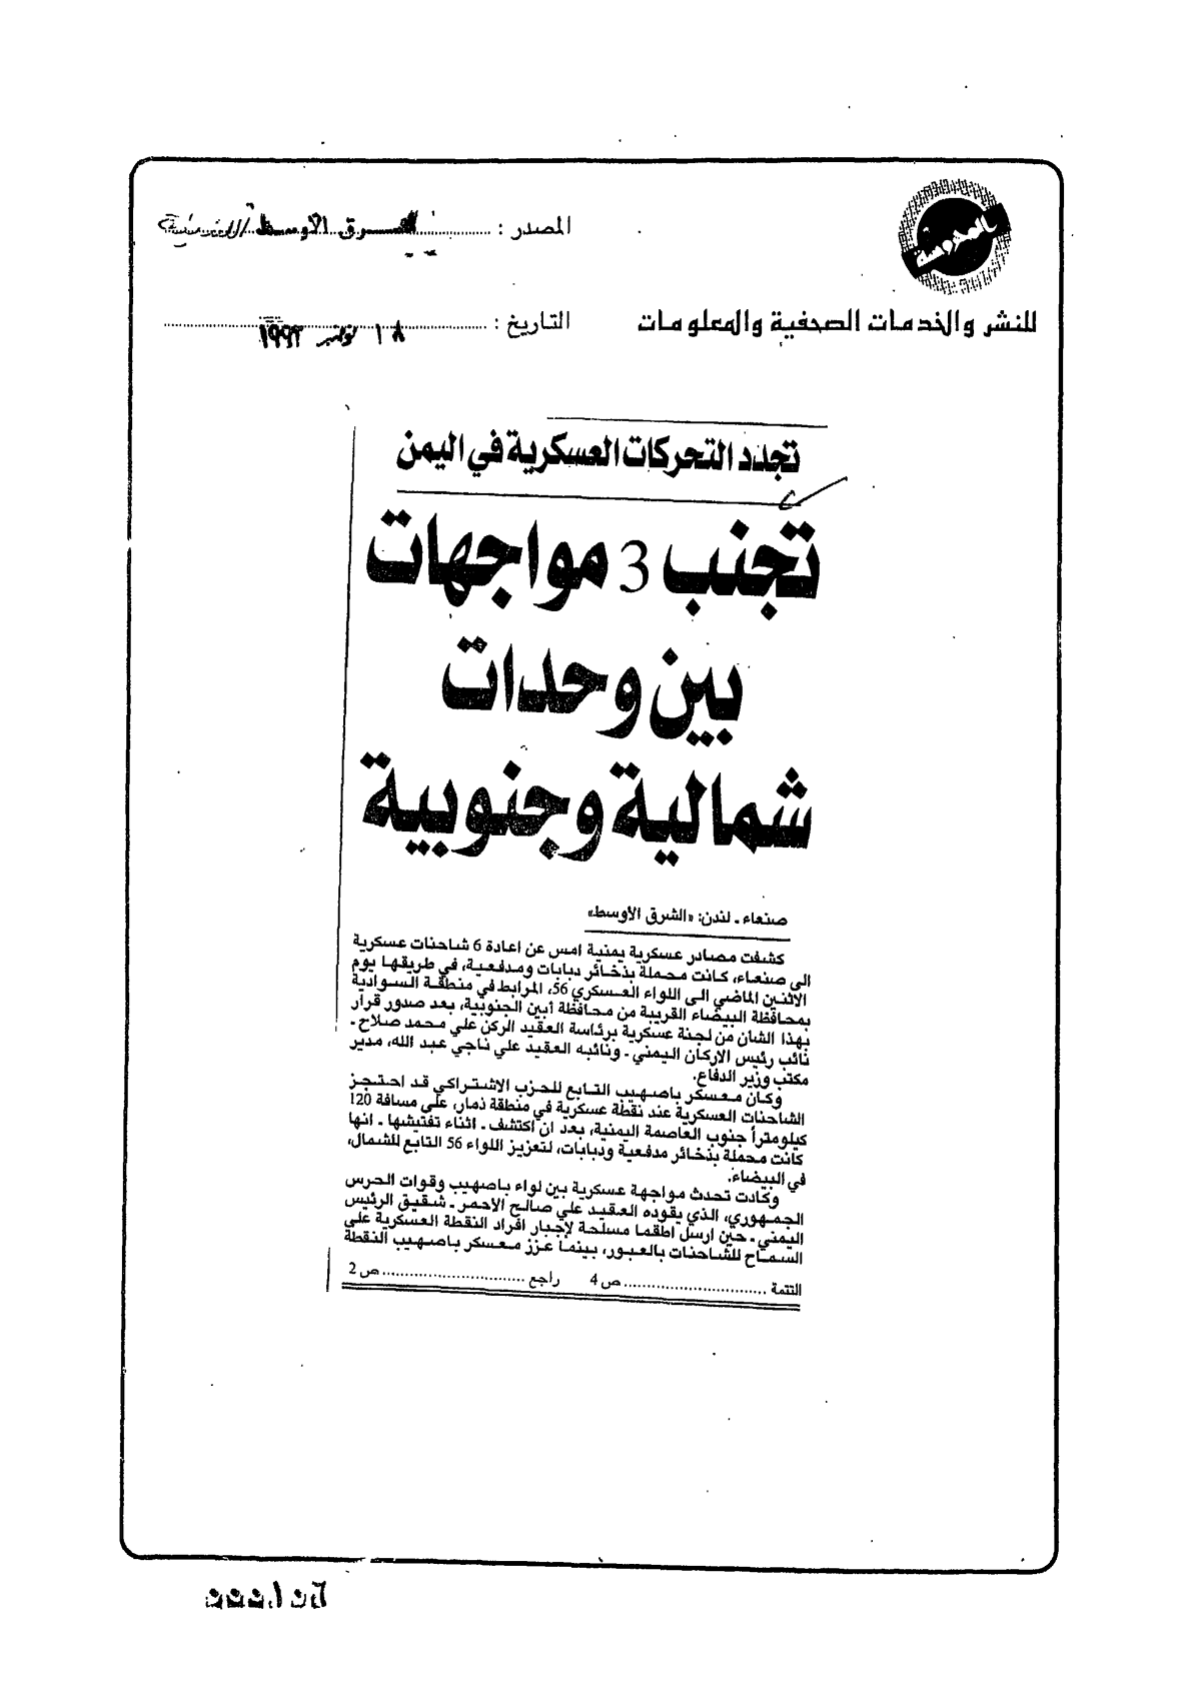 المحروسة
للنشر والخدمات الصحفية والمعلومات
المصدر : الشرق الأوسط اللندنية
التاريخ : ١٨ نوفمبر ١٩٩٣
تجدد التحركات العسكرية في اليمن
تجنب 3 مواجهات
بين وحدات
شمالية وجنوبية
صنعاء ـ لندن: «الشرق الأوسط»
كشفت مصادر عسكرية يمنية امس عن اعادة 6 شاحنات عسكرية
الى صنعاء، كانت محملة بذخائر دبابات ومدفعية، في طريقها يوم
الاثنين الماضي الى اللواء العسكري 56، المرابط في منطقة السوادية
بمحافظة البيضاء القريبة من محافظة أبين الجنوبية، بعد صدور قرار
بهذا الشان من لجنة عسكرية برئاسة العقيد الركن علي محمد صلاح ـ
نائب رئيس الاركان اليمني ـ ونائبه العقيد علي ناجي عبد الله، مدير
مكتب وزير الدفاع.
وكان معسكر باصهيب التابع للحزب الاشتراكي قد احتجز
الشاحنات العسكرية عند نقطة عسكرية في منطقة ذمار، على مسافة 120
كيلومتراً جنوب العاصمة اليمنية، بعد ان اكتشف ـ اثناء تفتيشها ـ انها
كانت محملة بذخائر مدفعية ودبابات، لتعزيز اللواء 56 التابع للشمال،
في البيضاء.
وكادت تحدث مواجهة عسكرية بين لواء باصهيب وقوات الحرس
الجمهوري، الذي يقوده العقيد علي صالح الاحمر ـ شقيق الرئيس
اليمني ـ حين ارسل اطقما مسلحة لإجبار افراد النقطة العسكرية على
السماح للشاحنات بالعبور، بينما عزز معسكر باصهيب النقطة
التتمة ........................ ص 4 راجع ........................ ص 2